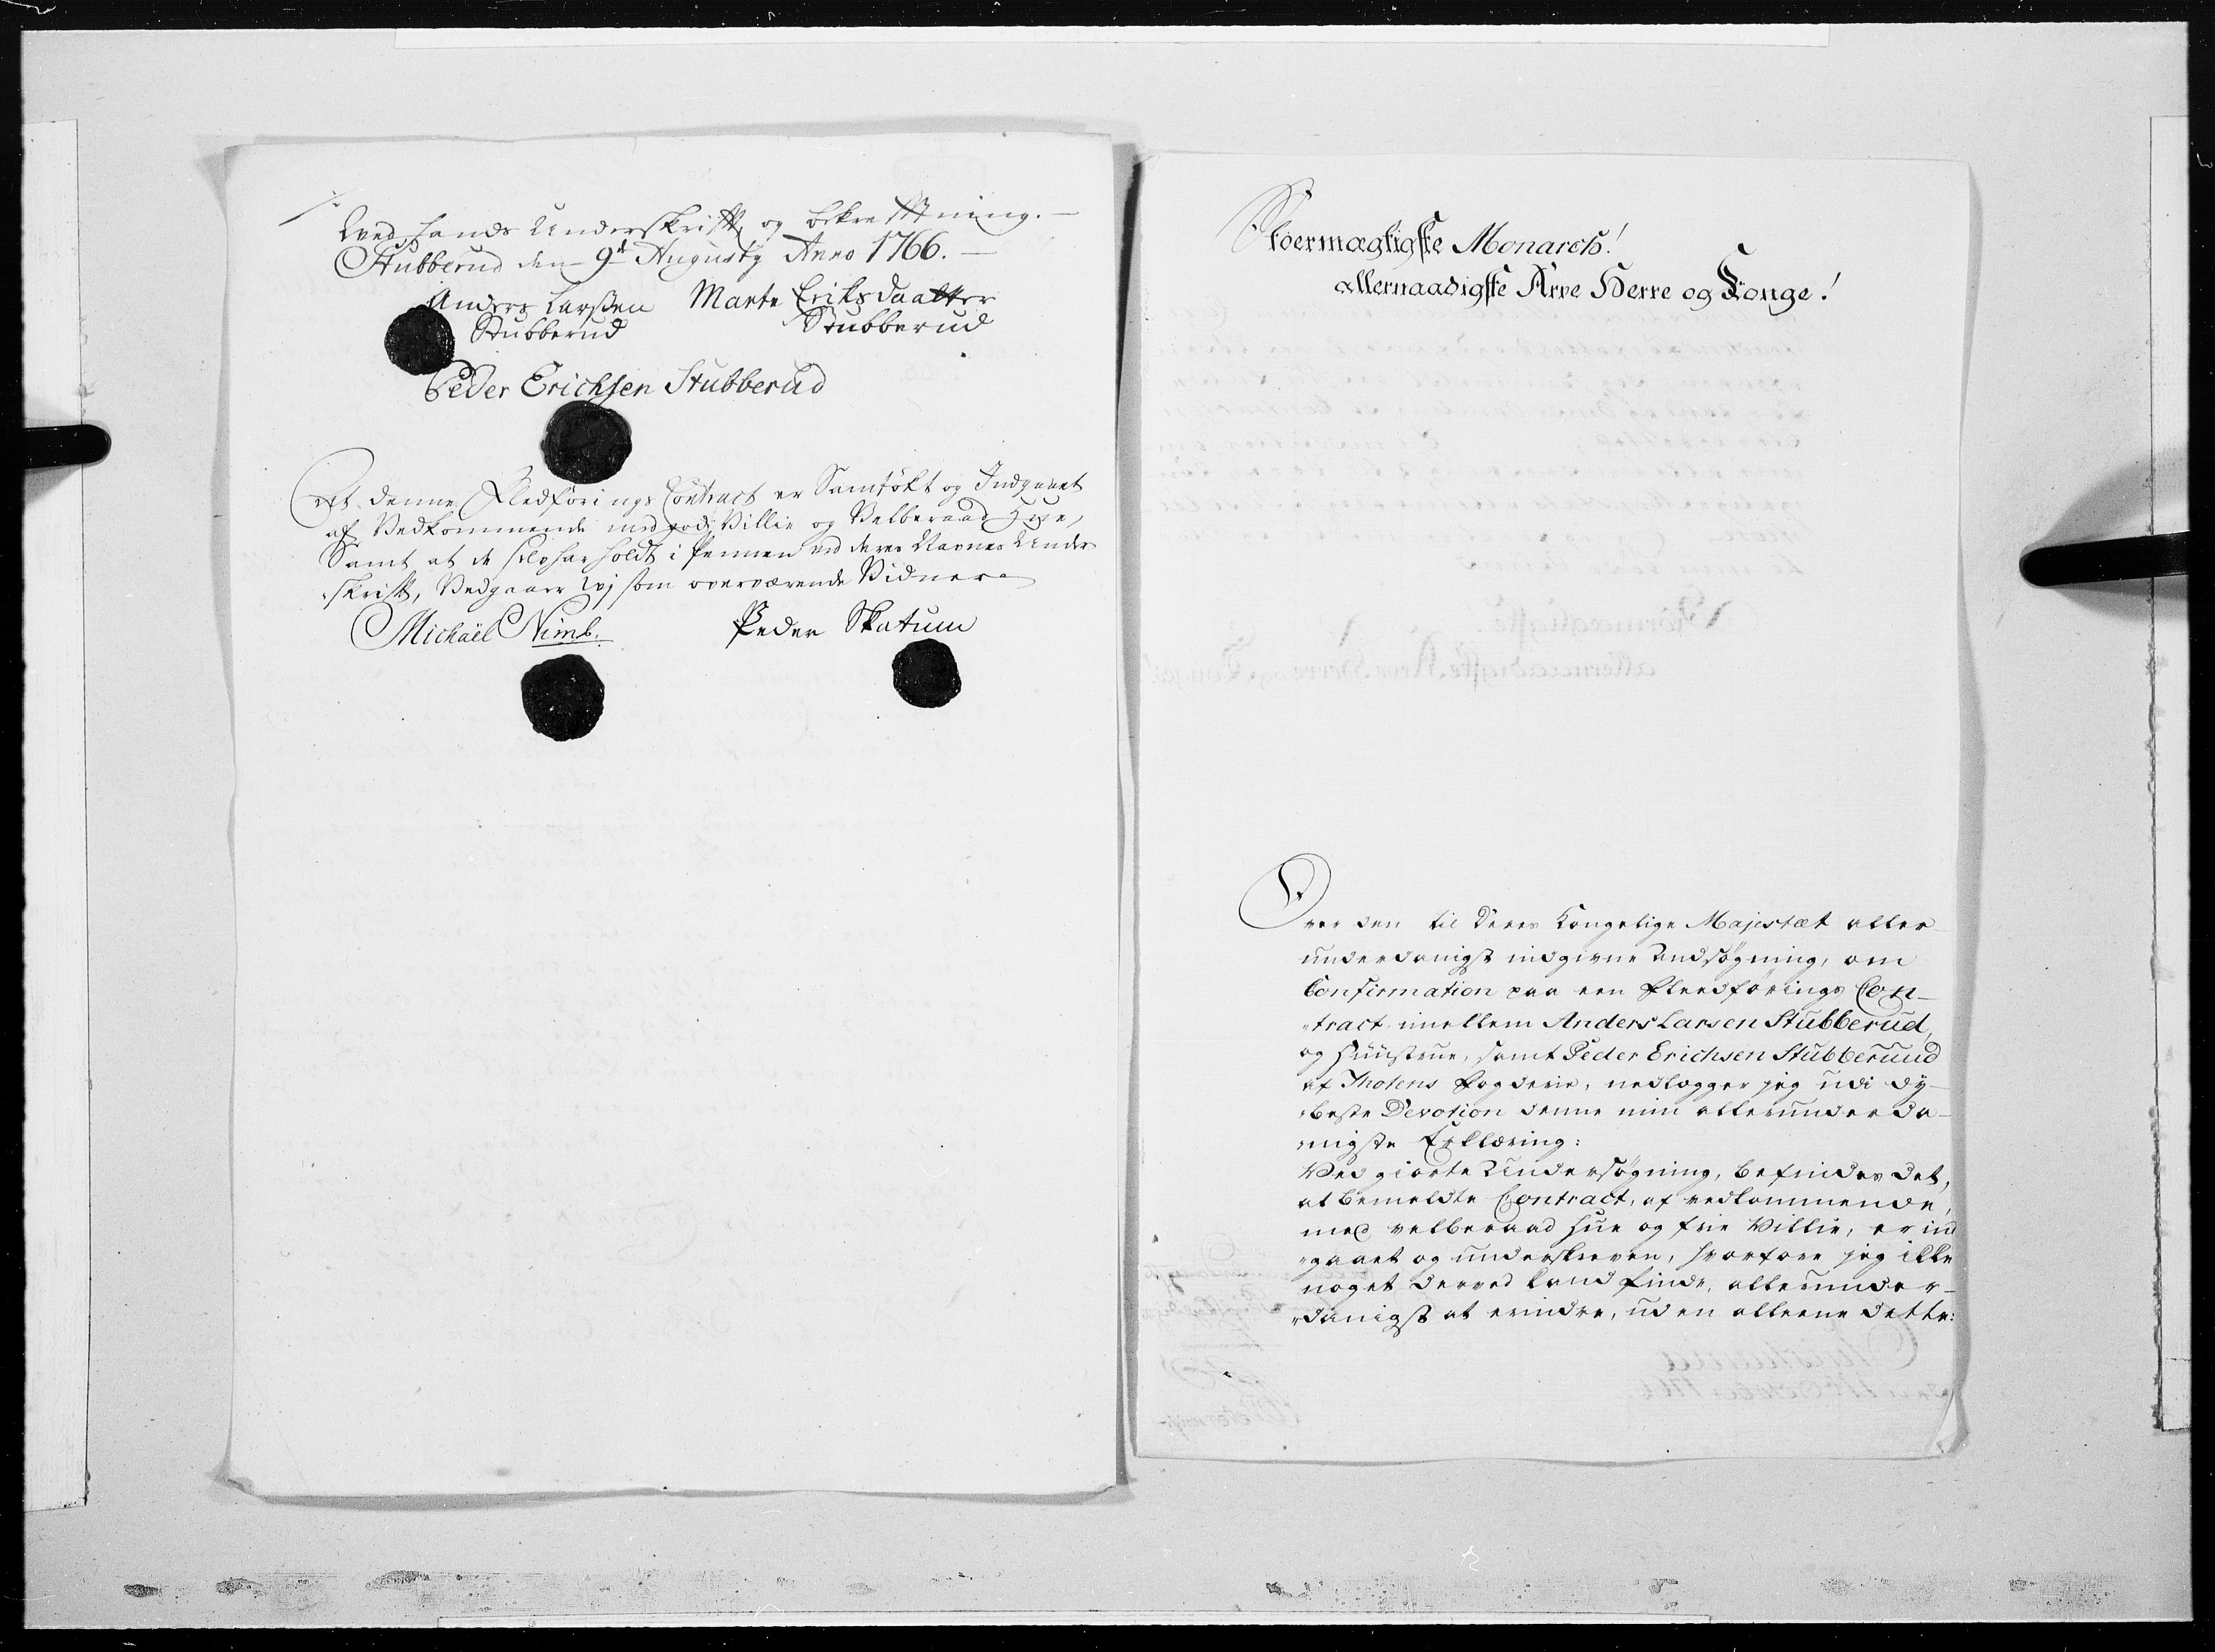 Ved Hands Underskrifft og bekræfftning. —
Stubberud den 9d Augusty Anno 1766. —
Anders Larsßen Marte Eriksdaatter
Stubberud Stubberud
Peder Erichsen Stubberud
At denne Fledförings Contract er Samtökt og Indgaaet
af Vedkommende med god Villie og Velberaad Hue,
Samt at de selv har holdt i Pennen ved deres Navnes Under
skrifft, Vedgaaer Vj som overværende Vidner
Michaël Nimb. Peder Skatum
Stoermægtigste Monarch!
allernaadigste Arve Herre og Konge!
Over den til Deres Kongelige Majestæt aller
underdanigst indgivne Ansøgning, om
Confirmation paa een Fleedførings Con-
tract imellem Anders Larsen Stubberud,
og Huustrue, samt Peder Erichsen Stubberuud
af Thotens Fogderie, nedlegger jeg udi dy-
beste Devotion denne min allerunderda-
nigste Erklæring:
Ved giorte Undersøgning, befindes det,
at bemeldte Contract, af vedkommende,
med velberaad Hue og frie Villie, er ind
gaaet og underskreven, hvorfore jeg ikke
noget derved kand finde, allerunder-
danigst at erindre, uden alleene dette: